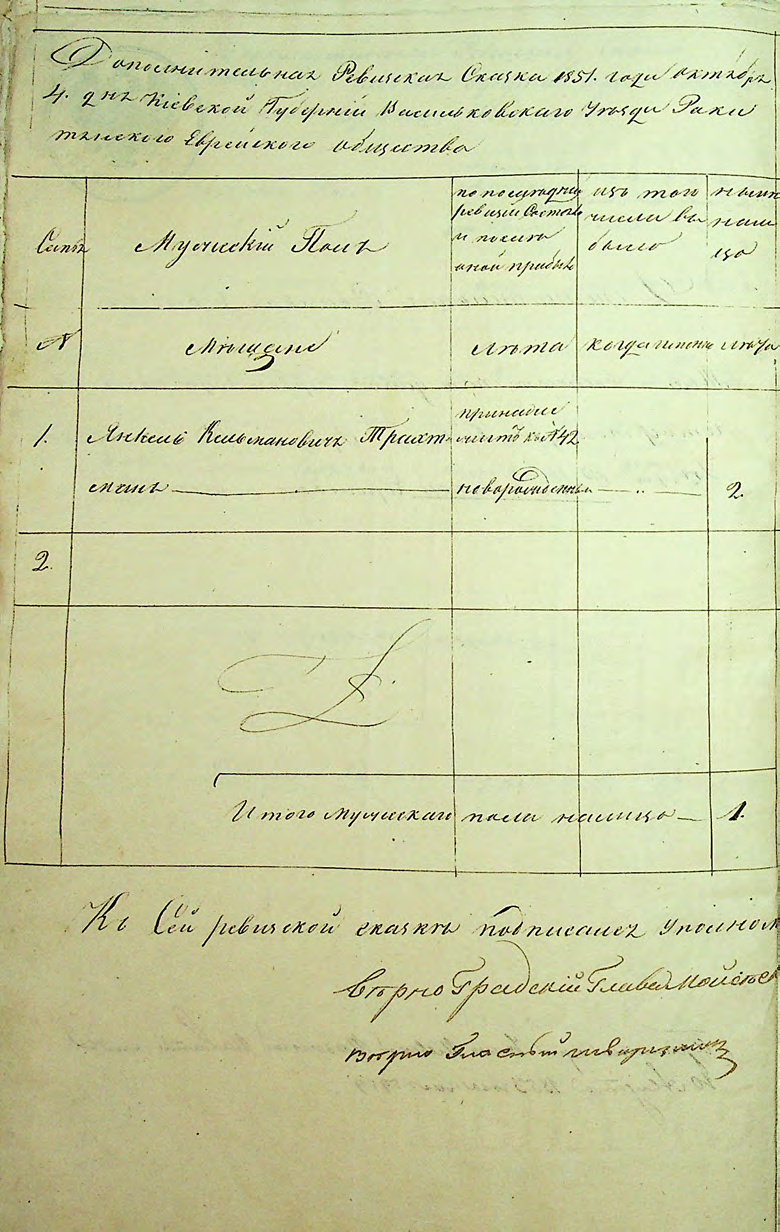 Дополнительная Ревизская Сказка 1851. года октября
4. дня Кіевской Губерній Васильковскаго Уѣзда Раки
тянского Еврейского общества
Семья
Мужескій Полъ
по послѣдней
ревизіи Состояло
и послѣ
оной прибыло
изъ того
числа вы
было
нынѣ
нали
цо
№
Мѣщане
лѣта
когда именно
лѣта
1.
Янкель Кельмановичъ Трахт
манъ
принадле
житъ къ № 42
новорожденны
2.
2.
Итого мужескаго пола налицо
1.
Къ Сей ревизской сказкѣ подписался уполном
Вѣрно Градскій Глава Мойсѣе
Вѣрно Гласный